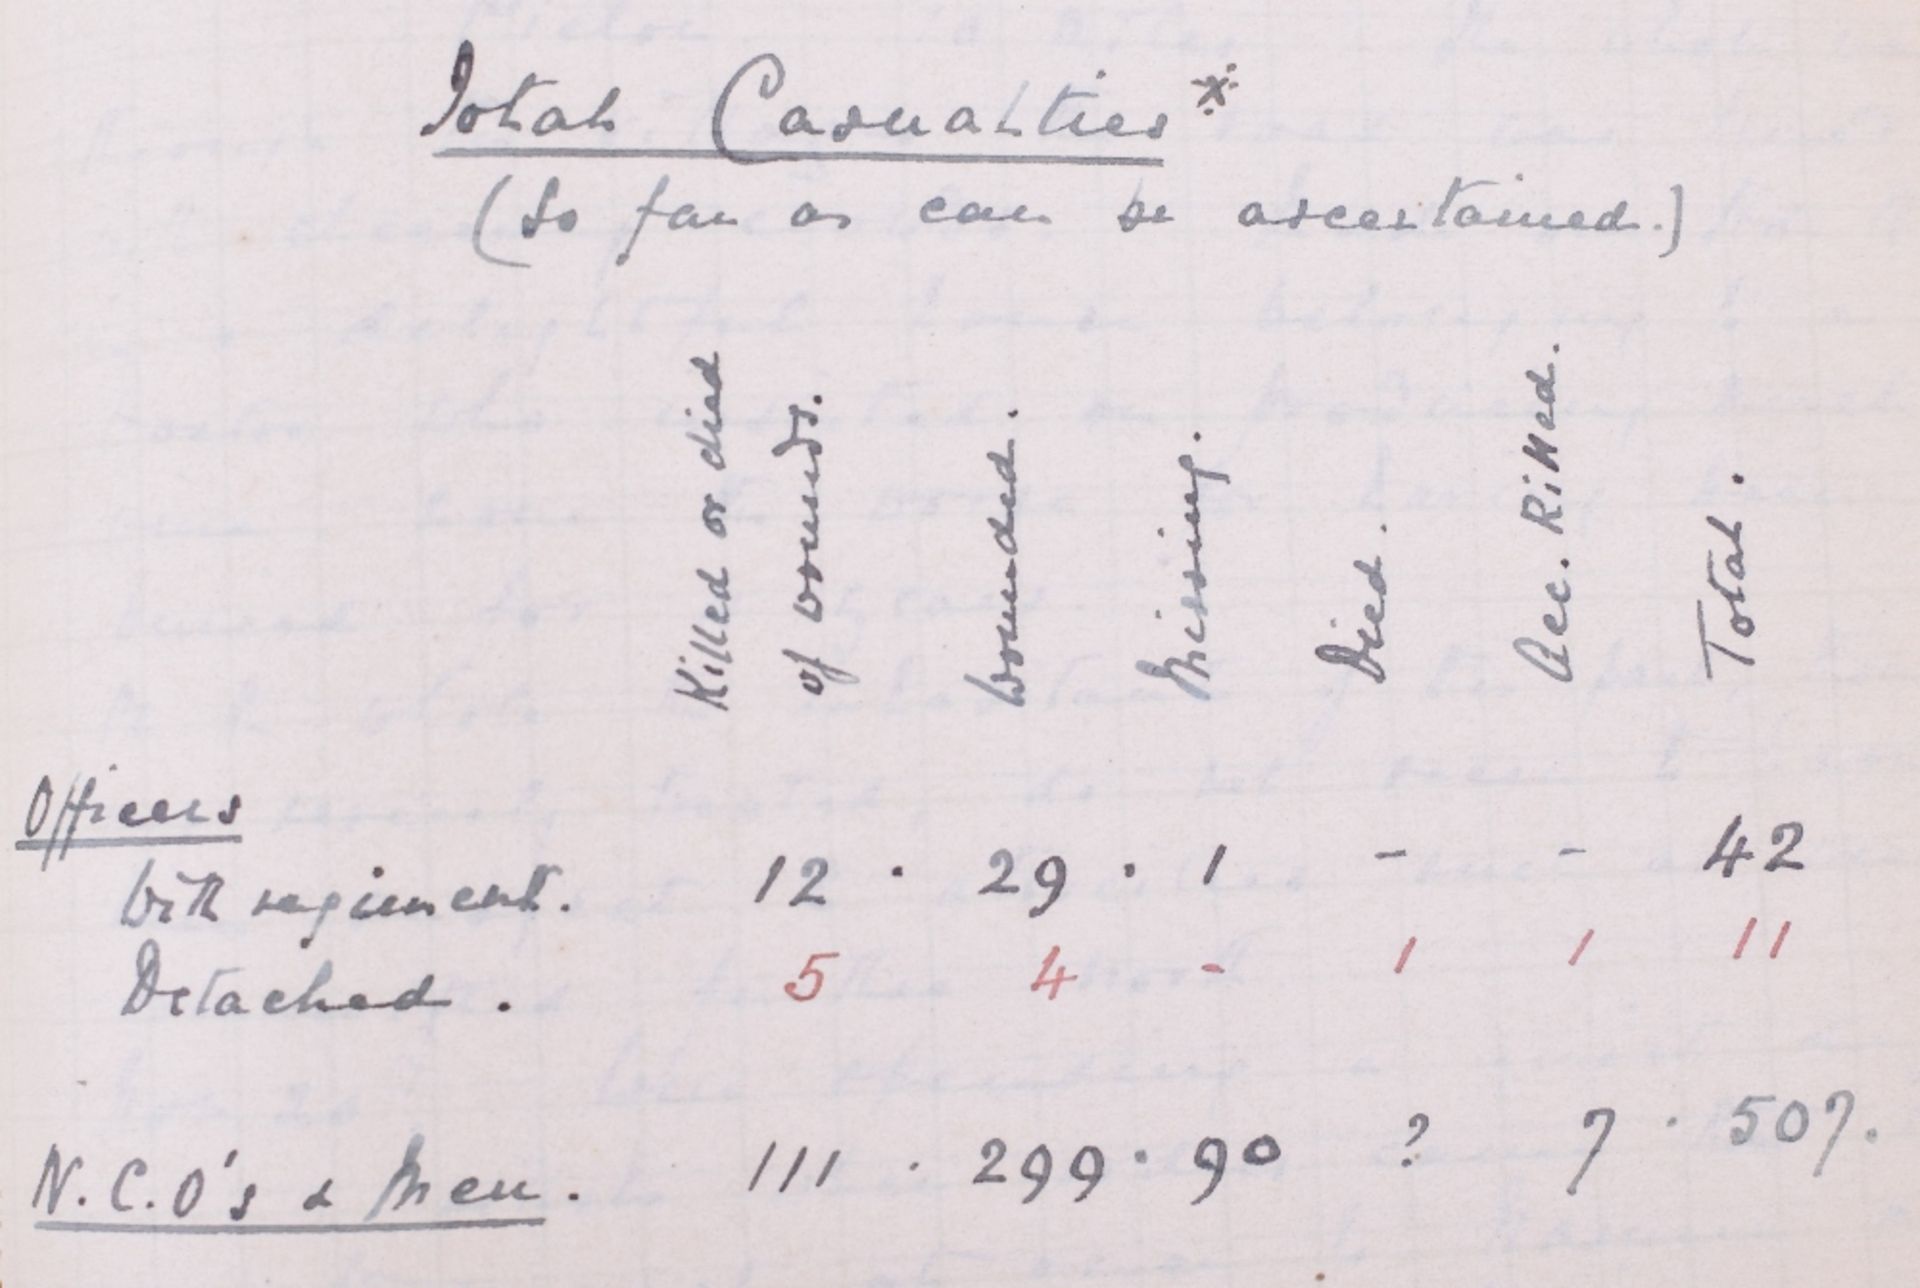 Total Casualties*
(So far as can be ascertained.)
Killed or died
of wounds.
Wounded.
Missing.
Died.
Acc. Killed.
Total.
Officers
With regiment. 12 . 29 . 1 - - 42
Detached. 5 4 - 1 1 11
N.C.O's & Men. 111 . 299 . 90 ? 7 . 507.